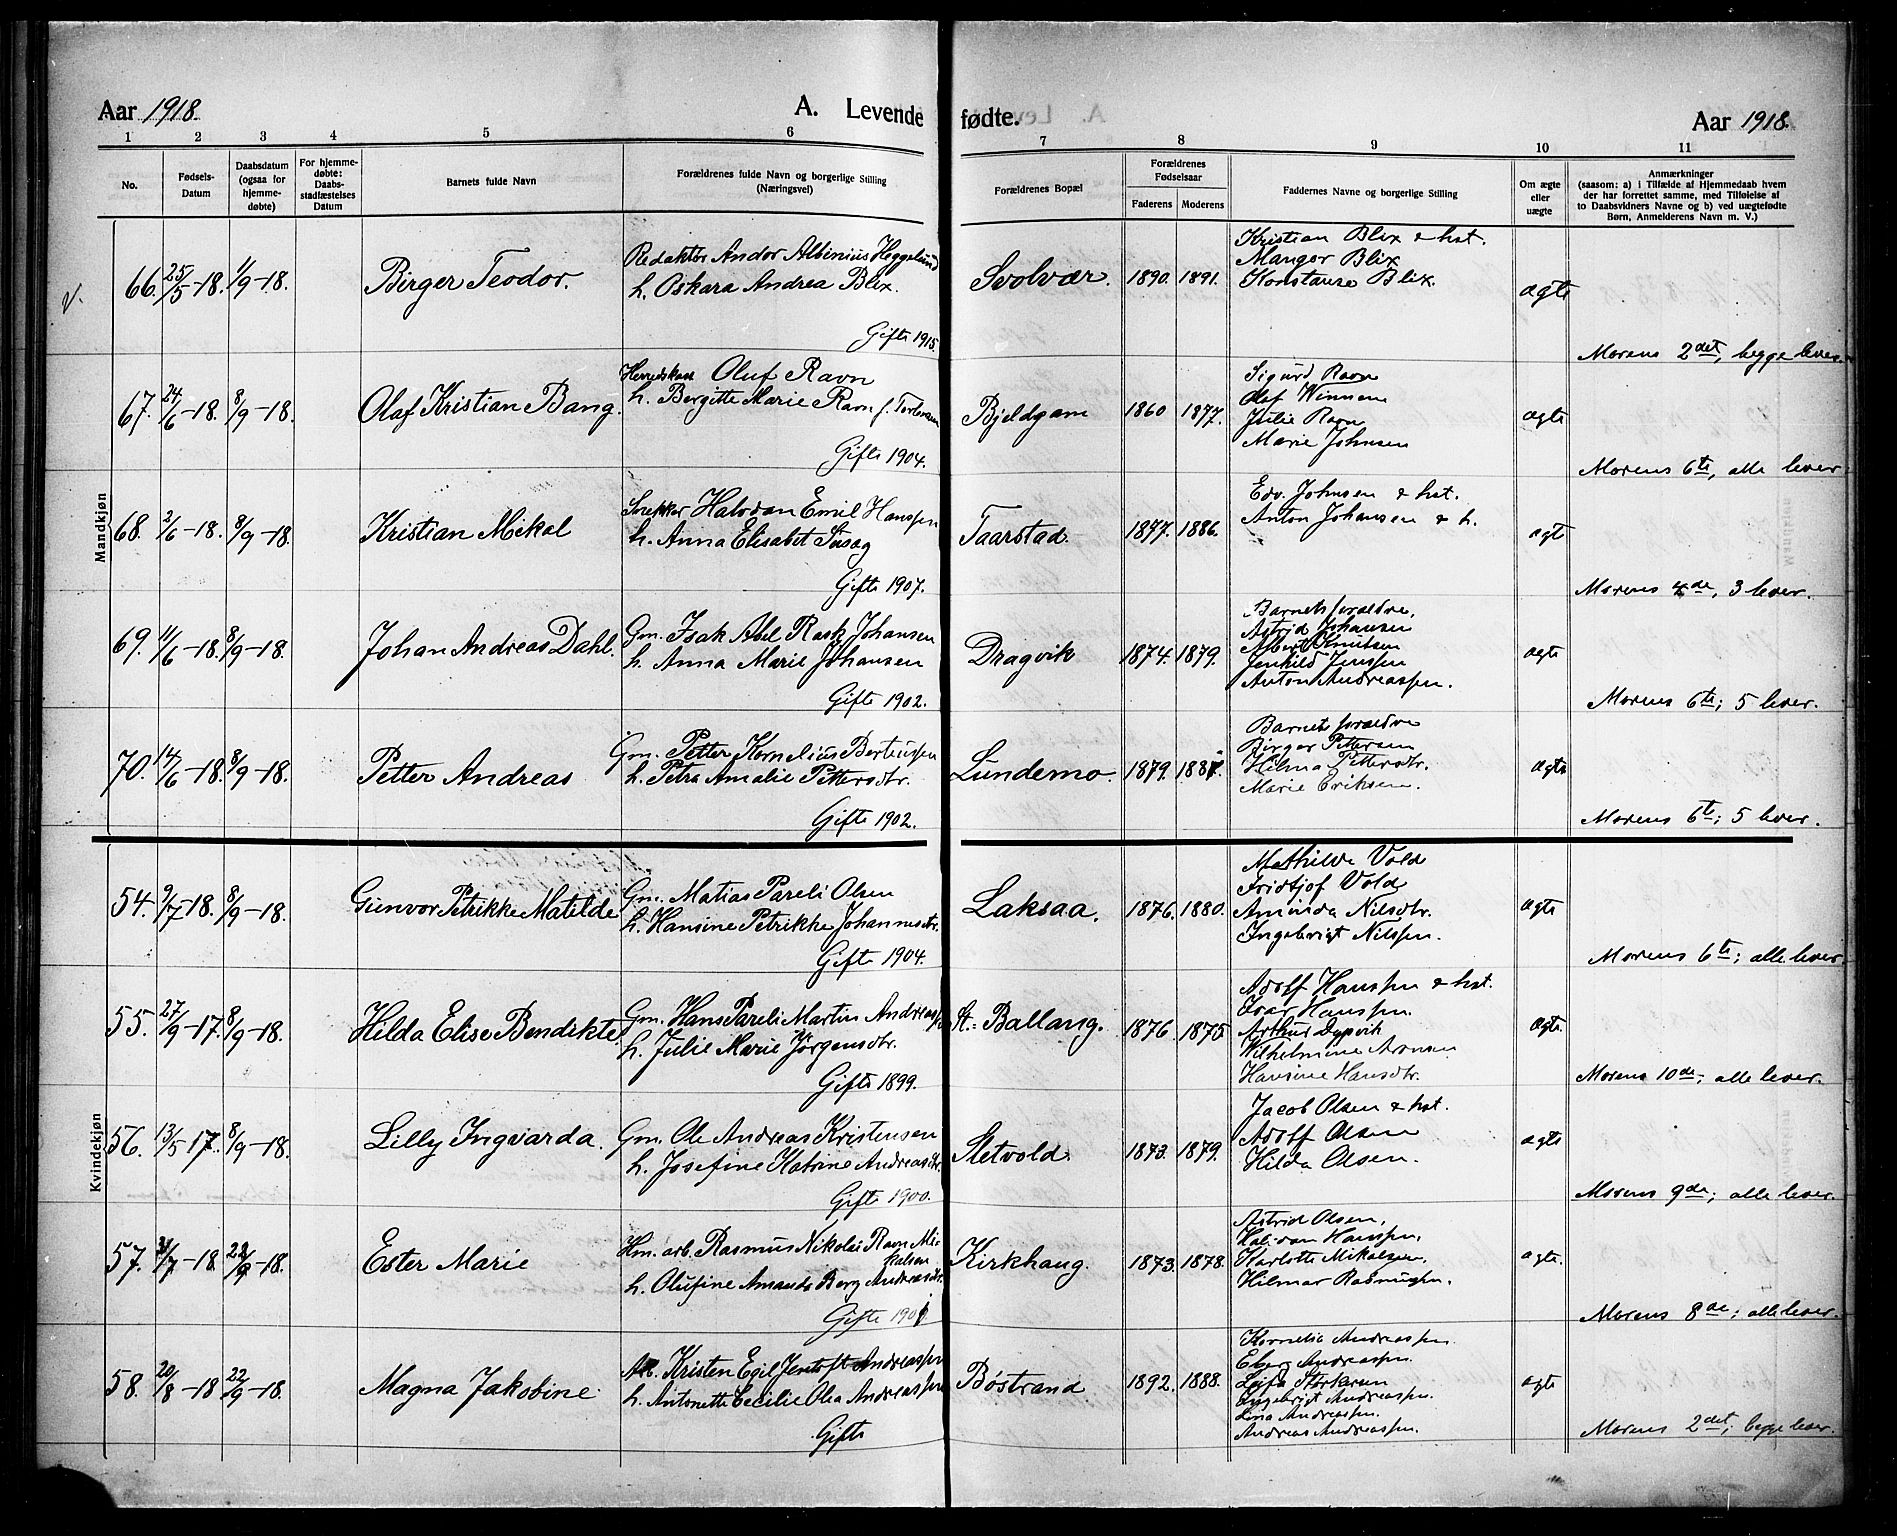 Aar 1918. A. Levende fødte. Aar 1918.
1 2 3 4 5 6 7 8 9 10 11
No. Fødsels-Datum Daabsdatum (ogsaa for hjemme-døbte) For hjemme-døbte: Daabs-stadfæstelses Datum Barnets fulde Navn Forældrenes fulde Navn og borgerlige Stilling (Næringsvei) Forældrenes Bopæl Forældrenes Fødselsaar Faderens Moderens Faddernes Navne og borgerlige Stilling Om ægte eller uægte Anmærkninger (saasom: a) i Tilfælde af Hjemmedaab hvem der har forrettet samme, med Tilføielse af to Daabsvidners Navne og b) ved uægtefødte Børn, Anmelderens Navn m. V.)
Mandkjøn
66. 25/5-18. 1/9-18. Birger Teodor. Redaktør Andor Albinius Heggelund
h. Oskara Andrea Blix.
Gifte 1915.
Svolvær. 1890. 1891.
Kristian Blix & hst.
Mangor Blix
Konstanse Blix.
ægte
Morens 2det, begge lever.
67. 24/6-18. 8/9-18. Olaf Kristian Bang. Oluf Ravn
h. Bergitte Marie Ravn f.
Gifte 1904.
Bjeldgam 1860 1877.
Sigurd Ravn
Olaf
Julie Ravn
Marie Johnsen
ægte
Morens 6te, alle lever
68. 2/6-18. 8/9-18. Kristian Mekal Snekker Halvdan Emil Hanssen
h. Anna Elisabet
Gifte 1907.
Taarstad. 1877. 1886.
Edv. Johnsen & hst.
Anton Johansen & h.
ægte
Morens 4de, 3 lever.
69. 11/6-18. 8/9-18. Johan Andreas Dahl. Gm. Isak Abel Rask Johansen
h. Anna Marie Johansen
Gifte 1902.
Dragvik 1874. 1879.
Barnets foreldre,
Astrid Johansen
Albert Knutsen
Jenssen
Anton Andreassen.
ægte
Morens 6te; 5 lever.
70. 14/6-18. 8/9-18. Petter Andreas Gm. Petter Kornelius Berteussen
h. Petra Amalie Pettersdtr.
Gifte 1902.
Lundemo. 1879. 1881.
Barnets foreldre
Birger Pettersen
Hilma Pettersdtr.
Marie Eriksen.
ægte
Morens 6te; 5 lever.
Kvindekjøn
54. 9/7-18. 8/9-18. Gunvor Petrikke Matilde Gm. Matias Pareli Olsen
h. Hansine Petrikke Johannesdtr.
Gifte 1904.
Laksaa. 1876. 1880.
Mathilde Vold
Fridtjof Vold
Aminda Nilsdtr.
Ingebrigt Nilssen.
ægte
Morens 6te; alle lever
55. 27/9-17. 8/9-18. Hilda Elise Bendikte Gm. Hans Pareli Martin Andreass.
h. Julie Marie Jørgensdtr.
Gifte 1899.
St. Ballang. 1876 1875
Adolf Hanssen & hst.
Ivar Hanssen.
Arthur Dypvik
Wilhelmine Aronsen
Hansine Hansdtr.
ægte
Morens 10de; alle lever.
56. 13/5-17. 8/9-18. Lilly Ingvarda. Gm. Ole Andreas Kristensen
h. Josefine Katrine Andreasdtr.
Gifte 1900.
Sletvold. 1873. 1879.
Jacob Olsen & hst.
Adolf Olsen
Hilda Olsen.
ægte
Morens 9de; alle lever.
57. /7-18 22/9-18. Ester Marie Hm. arb. Rasmus Nikolai Ravn Mikalsen
h. Olufine Amanda Berg Andreasdtr.
Gifte 1901
Kirkhaug. 1873. 1878.
Astrid Olsen,
Halvdan Hanssen,
Karlotte Mikalsen,
Hilmar Rasmussen.
ægte
Morens 8de; alle lever.
58. 20/8-18 22/9-18. Magna Jakobine. Arb. Kristen Egil Jentoft Andreassen
h. Antonette Cecilie Olea Andreassen
Gifte
Bøstrand 1892. 1888.
Kornelia Andreassen.
Andreassen.
Ingebrigt Andreassen.
Lina Andreassen.
Andreas Andreassen.
ægte
Morens 2det; begge lever.